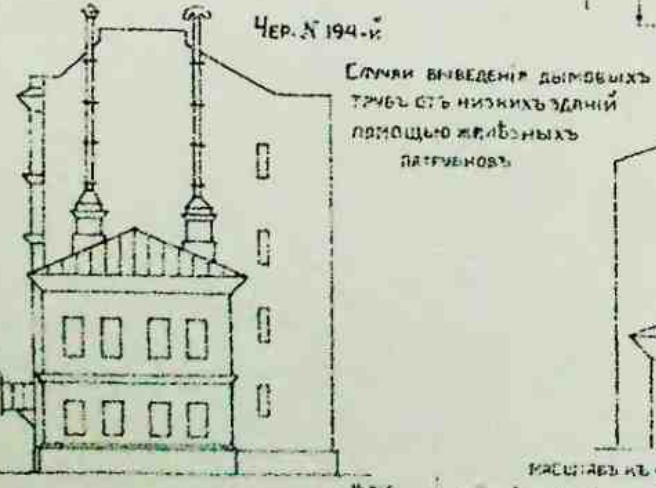 Чер. N 194-й
Случаи выведенія дымовыхъ
трубъ отъ низкихъ зданій
помощью желѣзныхъ
патрубковъ
масштабъ къ